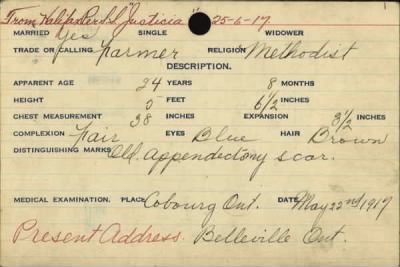 From Halifax Per S.S. "Justicia" 25-6-17
MARRIED Yes SINGLE WIDOWER
TRADE OR CALLING Farmer RELIGION Methodist
DESCRIPTION.
APPARENT AGE 24 YEARS 8 MONTHS
HEIGHT 5 FEET 6 1/2 INCHES
CHEST MEASUREMENT 38 INCHES EXPANSION 3 1/2 INCHES
COMPLEXION Fair EYES Blue HAIR Brown
DISTINGUISHING MARKS Old appendectomy scar.
MEDICAL EXAMINATION. PLACE Cobourg Ont. DATE May 22nd 1917
Present Address. Belleville Ont.